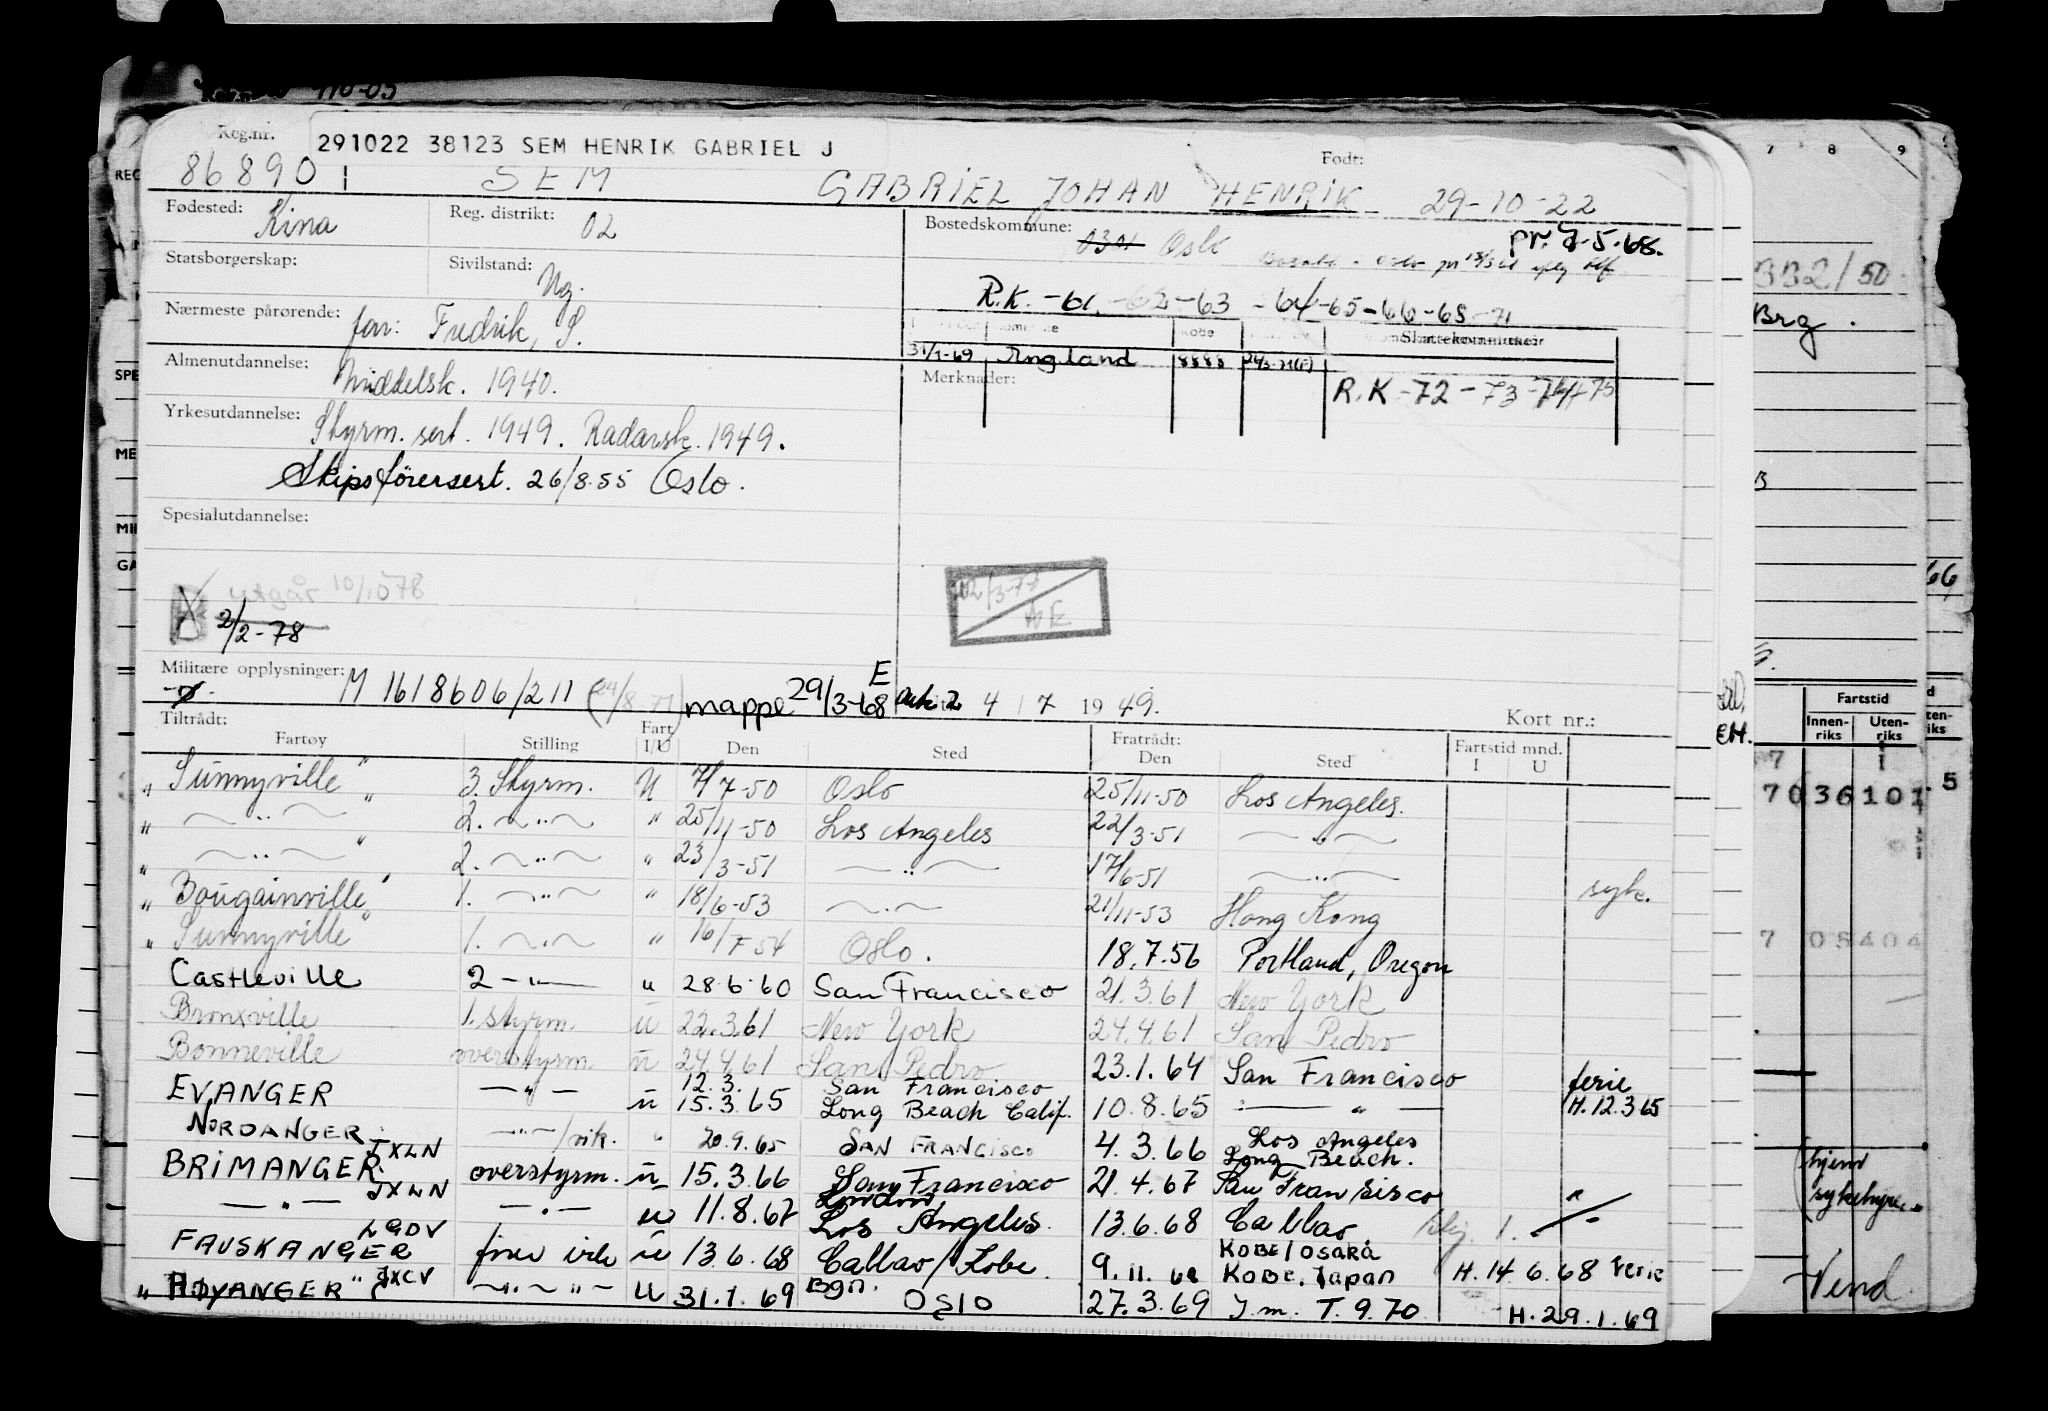 Reg.nr.
291022 38123 SEM HENRIK GABRIEL J
Født:
86890 SEM GABRIEL JOHAN HENRIK 29-10-22
Fødested: Kina
Reg. distrikt: 02
Bostedskommune: 0301 Oslo
Statsborgerskap:
Sivilstand: Ug.
R.K. -61-62-63-64-65-66-68-71
Nærmeste pårørende: far: Fredrik, S.
31/1-69 England 8888
Almenutdannelse: Middelsk. 1940.
Merknader:
R.K-72-73-74+75
Yrkesutdannelse: Styrm. sert. 1949. Radarsk. 1949.
Skipsførersert. 26/8-55 Oslo.
Spesialutdannelse:
Utgår
2/2-78
Militære opplysninger: M 1618606/211 mappe 29/3-68 E
4 / 7 1949.
Kort nr.:
Tiltrådt: Fratrådt:
Fartøy Stilling Fart I/U Den Sted Den Sted Fartstid mnd. I U
" Sunnyville " 3. Styrm. U 7/7-50 Oslo 25/11-50 Los Angeles.
" — " — " 2. — " — " 25/11-50 Los Angeles 22/3-51 — " —
" — " — " 2. — " — " 23/3-51 — " — 17/6-51 — " — syk.
" Bougainville " 1. — " — " 18/6-53 — " — 21/11-53 Hong Kong
" Sunnyville " 1. — " — " 16/7-54 Oslo. 18.7.56 Portland, Oregon
Castleville 2 — " — " 28.6.60 San Francisco 21.3.61 New York
Bronxville 1. styrm. u 22.3.61 New York 24.4.61 San Pedro
Bonneville overstyrm. u 24.4.61 San Pedro 23.1.64 San Francisco
EVANGER — " — u 12.3. 15.3.65 San Francisco Long Beach Calif. 10.8.65 — " — ferie H.12.3.65
NORDANGER — " — /vik. " 20.9.65 SAN FRANCISCO 4.3.66 Los Angeles Long Beach.
BRIMANGER JXLN overstyrm. u 15.3.66 San Francisco 21.4.67 San Fransisco
— " — JXLN — " — u 11.8.67 London Los Angeles 13.6.68 Callao
FAUSKANGER LGDV u 13.6.68 Callao/Kobe 9.11. KOBE/OSAKA KOBE, Japan H.14.6.68 Ferie
" HØYANGER " JXCV — " — " — U 31.1.69 Bgn. OSlO 27.3.69 Y.m. T.9.70 H.29.1.69
7 8 9
332/50
Brg.
Fartstid
Innenriks Utenriks
7 036 101 5
hjem
Vend